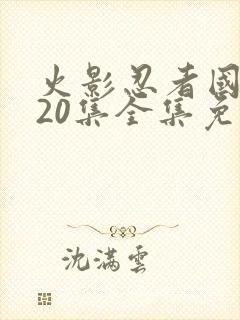 火影忍者國
20集全集免
沈满雲